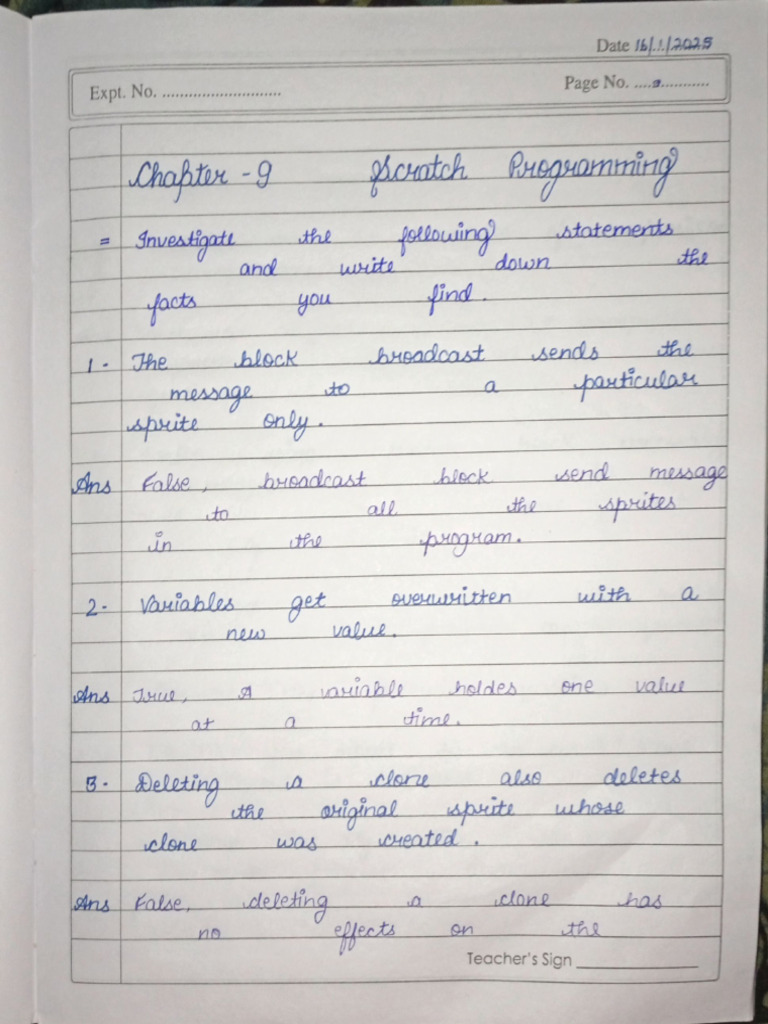 Date 16/1/2025
Expt. No. ...........................
Page No. ..............
Chapter - 9 Scratch Programming
= Investigate the following statements
and write down the
facts you find.
1. The block broadcast sends the
message to a particular
sprite only.
Ans False, broadcast block send message
to all the sprites
in the program.
2. Variables get overwritten with a
new value.
Ans True, A variable holdes one value
at a time.
3. Deleting a clone also deletes
the original sprite whose
clone was created.
Ans False, deleting a clone has
no effects on the
Teacher's Sign